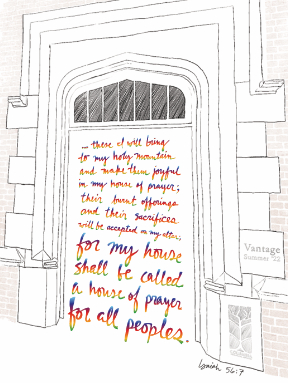 ... these I will bring
to my holy mountain
and make them joyful
in my house of prayer;
their burnt offerings
and their sacrifices
will be accepted on my altar;
for my house
shall be called
a house of prayer
for all peoples.
Vantage
Summer '22
Isaiah 56:7